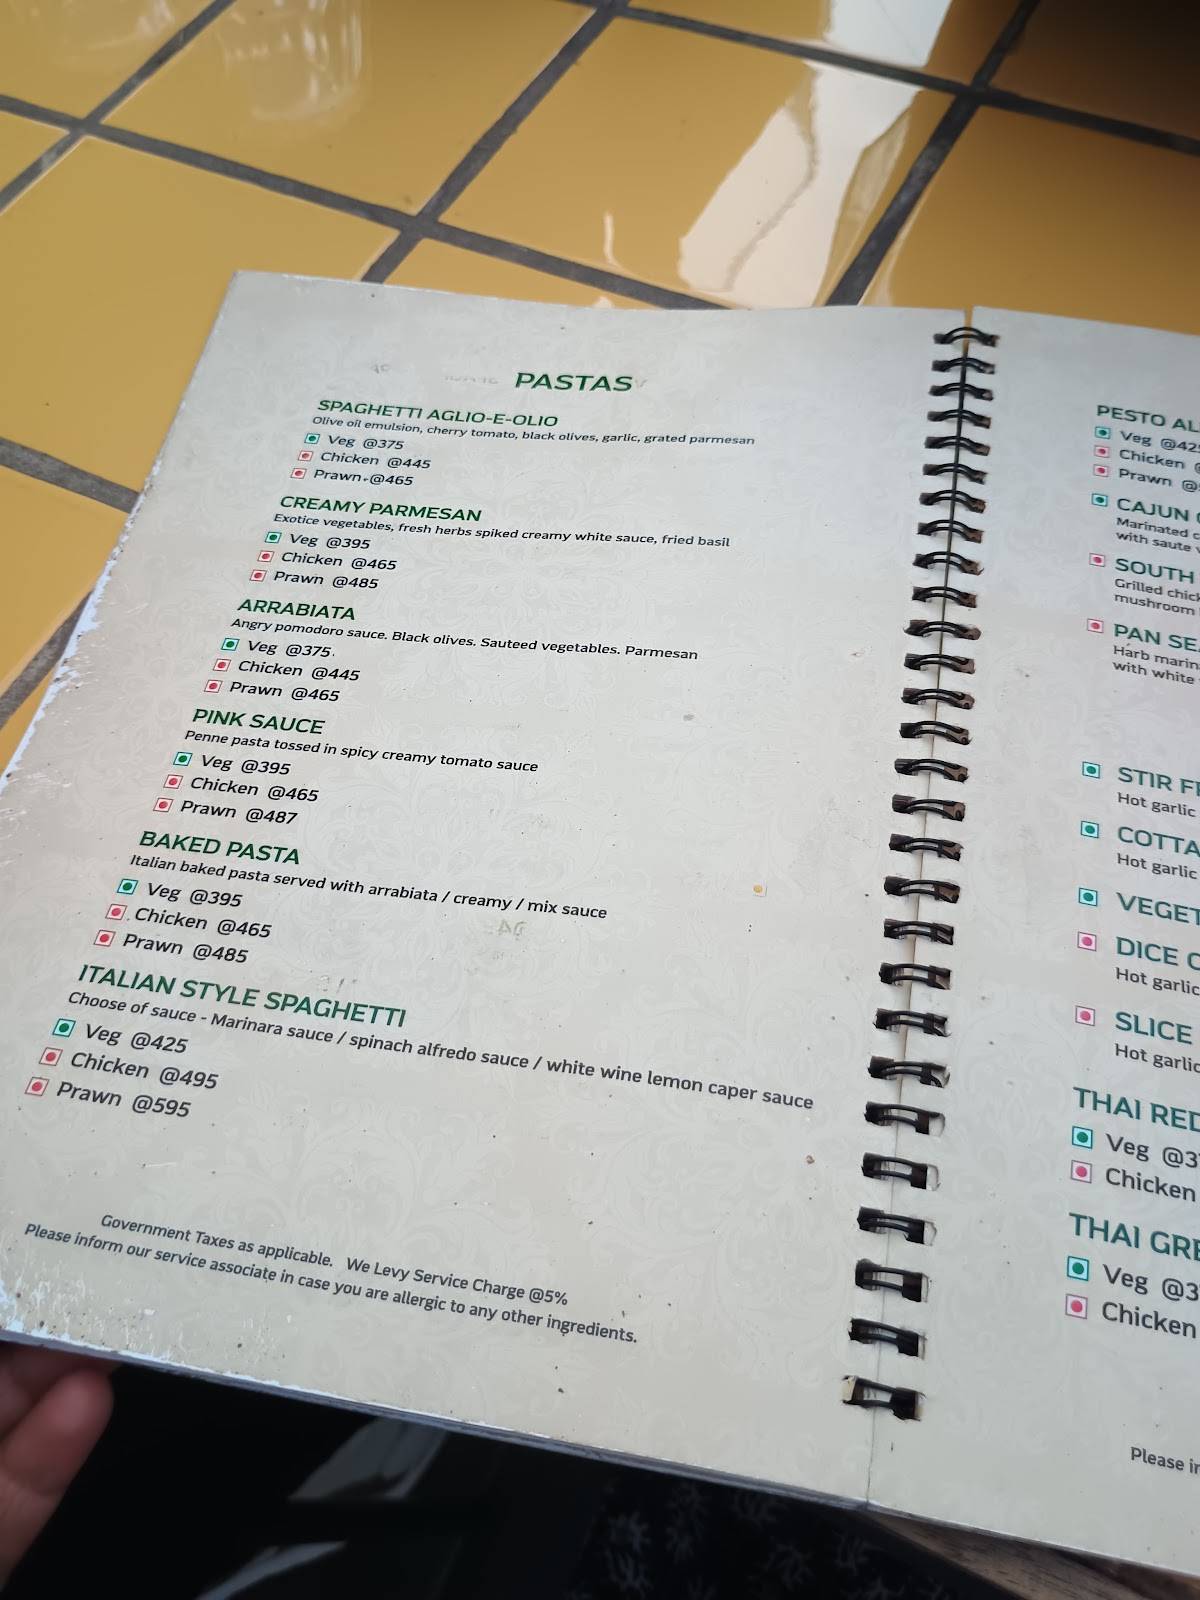 PASTAS
SPAGHETTI AGLIO-E-OLIO
Olive oil emulsion, cherry tomato, black olives, garlic, grated parmesan
Veg @375
Chicken @445
Prawn @465
CREAMY PARMESAN
Exotice vegetables, fresh herbs spiked creamy white sauce, fried basil
Veg @395
Chicken @465
Prawn @485
ARRABIATA
Angry pomodoro sauce. Black olives. Sauteed vegetables. Parmesan
Veg @375
Chicken @445
Prawn @465
PINK SAUCE
Penne pasta tossed in spicy creamy tomato sauce
Veg @395
Chicken @465
Prawn @487
BAKED PASTA
Italian baked pasta served with arrabiata / creamy / mix sauce
Veg @395
Chicken @465
Prawn @485
ITALIAN STYLE SPAGHETTI
Choose of sauce - Marinara sauce / spinach alfredo sauce / white wine lemon caper sauce
Veg @425
Chicken @495
Prawn @595
Government Taxes as applicable. We Levy Service Charge @5%
Please inform our service associate in case you are allergic to any other ingredients.
PESTO
Veg
Chicken
Prawn @
CAJUN
Marinated
with saute
SOUTH
Grilled
mushroom
PAN
with white
STIR
Hot garlic
Hot garlic
DICE
Hot garlic
SLICE
Hot garlic
THAI RED
Veg
Chicken
THAI
Veg
Chicken
Please